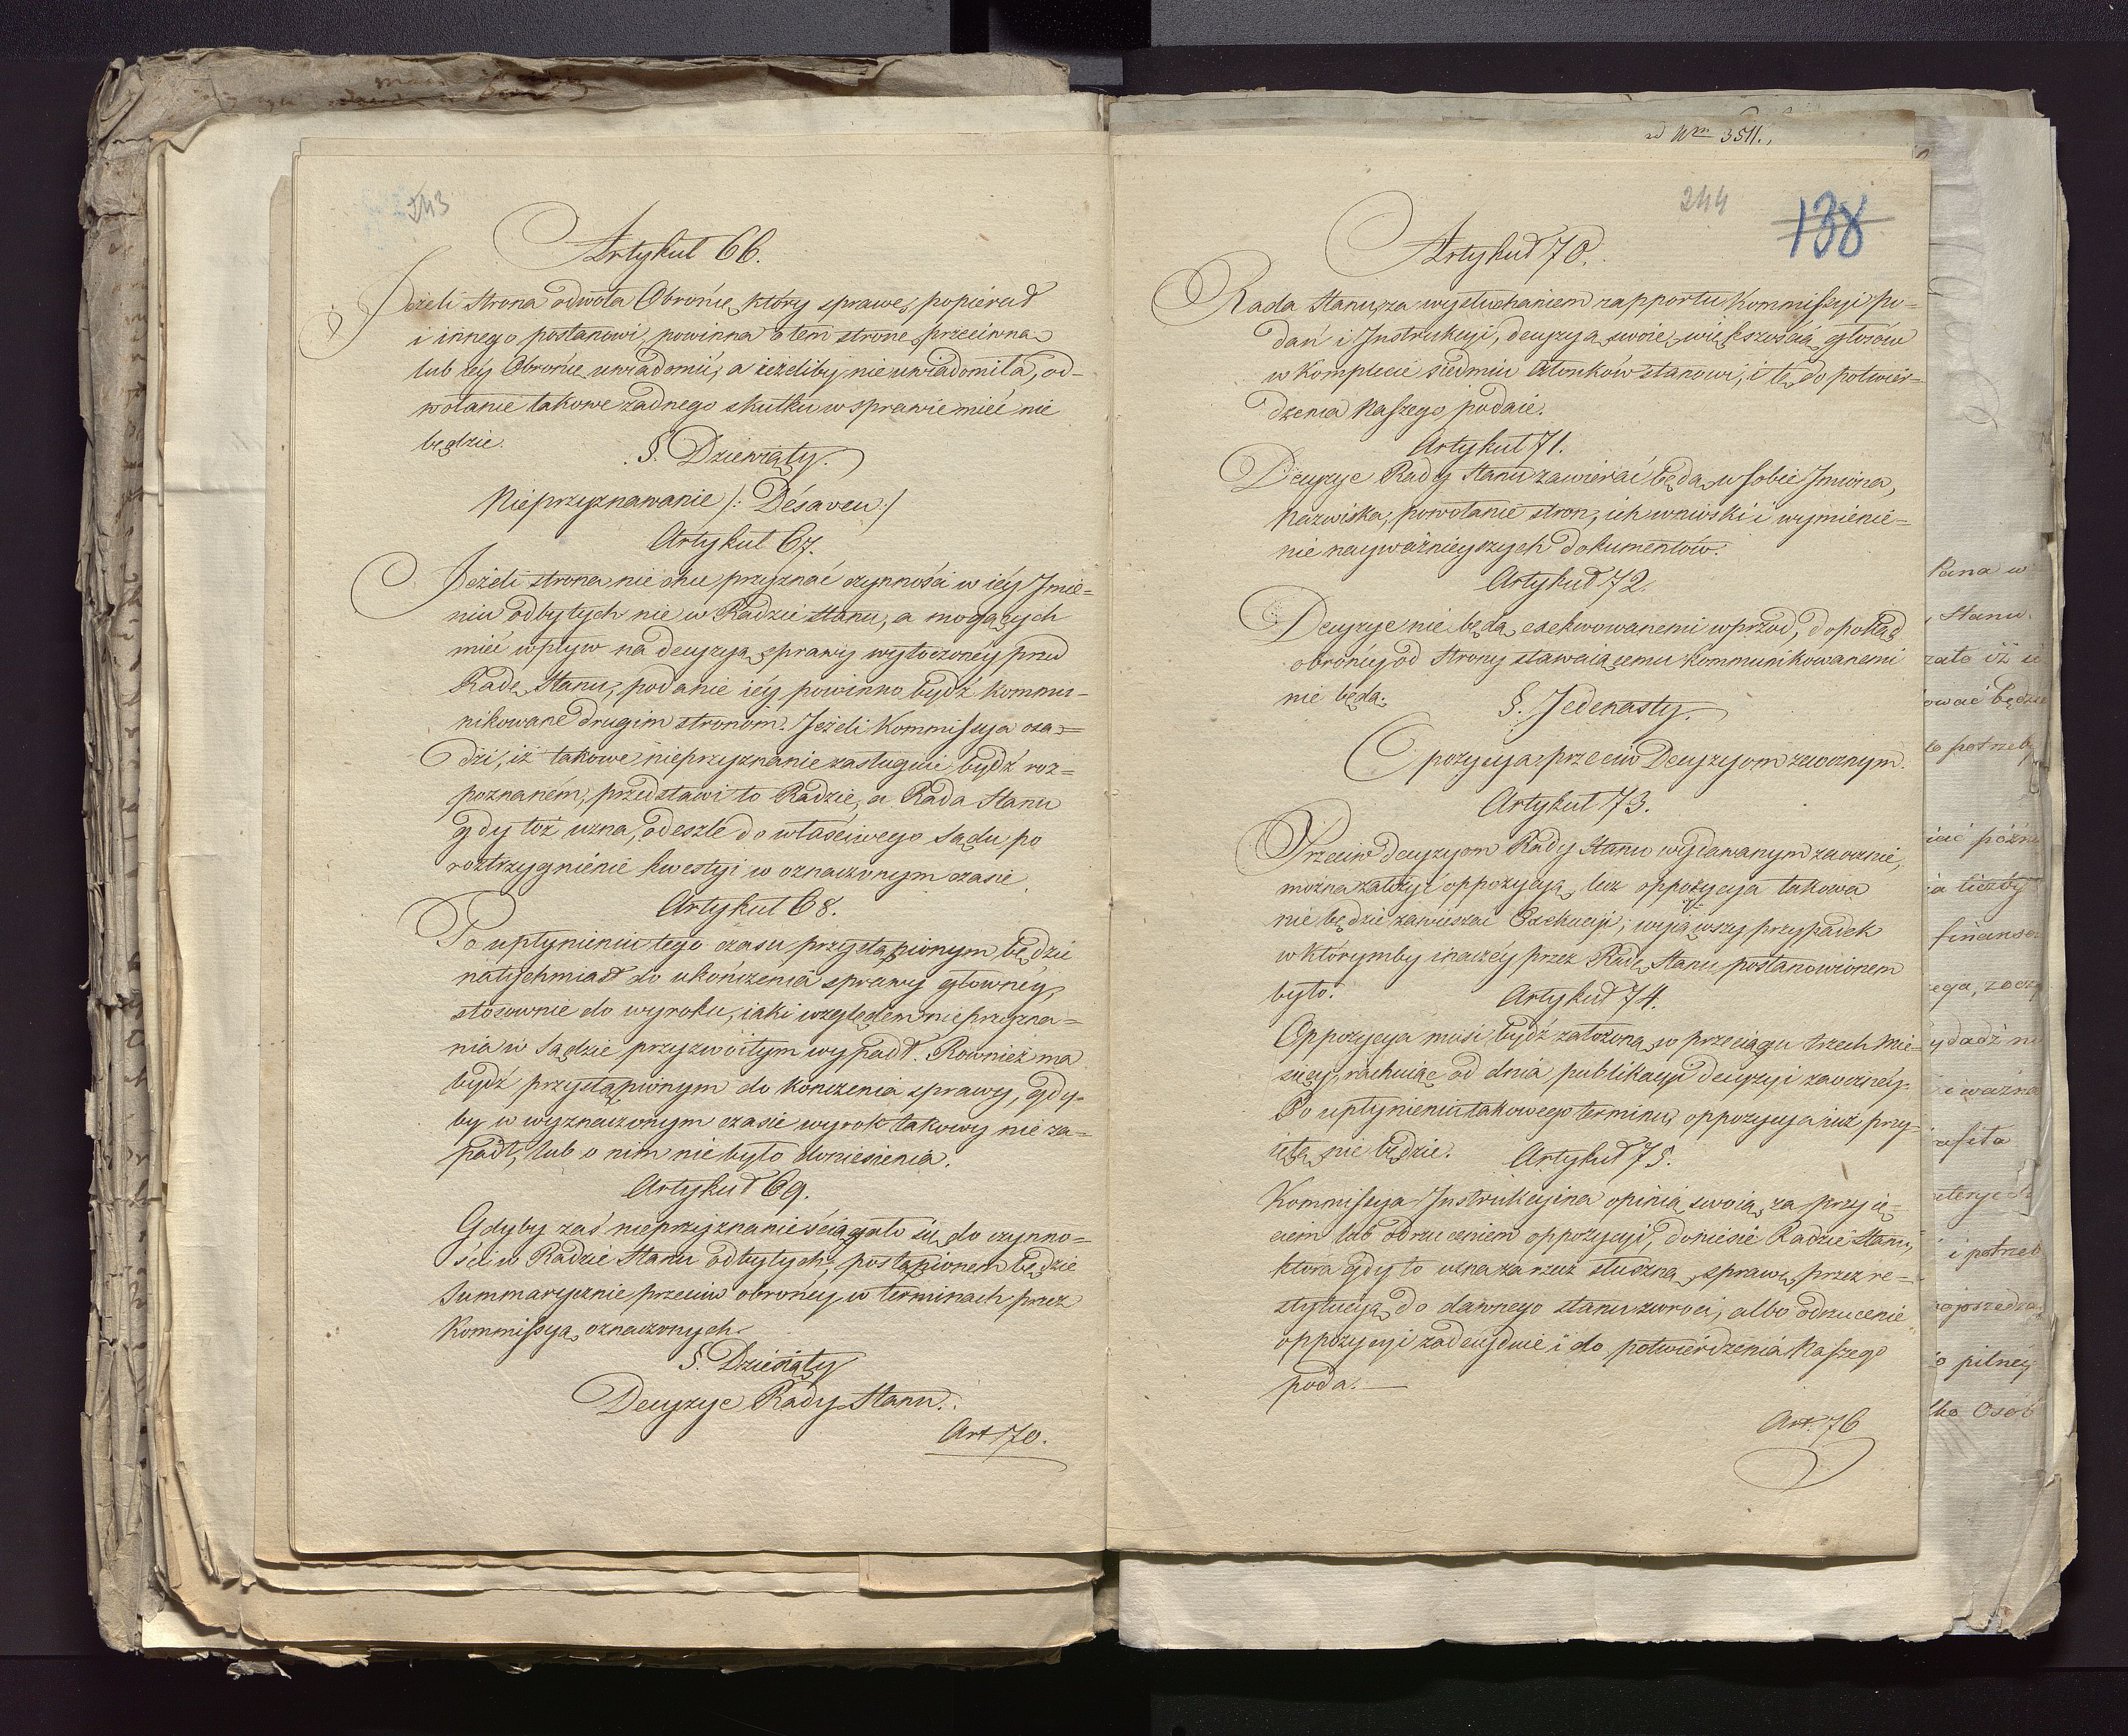 243
Artykuł 66.
Jeżeli strona odwoła Obrońcę, który sprawę popierał
i innego postanowi, powinna o tem stronę przeciwną
lub iéy Obrońcę uwiadomić, a ieżeliby nie uwiadomiła, od=
wołanie takowe żadnego skutku w sprawie mieć nie
będzie.
§. Dziewiąty.
Nieprzyznawanie /: Désaveu :/
Artykuł 67.
Jeżeli strona nie chce przyznać czynności w iéy Jmie=
niu odbytych nie w Radzie Stanu, a mogących
mieć wpływ na decyzyą sprawy wytoczonéy przed
Radę Stanu, podanie iéy powinno bydź kommu=
nikowane drugim stronom. Jeżeli Kommissya osą=
dzi, iż takowe nieprzyznanie zasługuie bydź roz=
poznaném, przedstawi to Radzie, a Rada Stanu
gdy toż uzna, odeszle do właściwego Sądu po
roztrzygnienie kwestyi w oznaczonym czasie.
Artykuł 68.
Po upłynieniu tego czasu, przystąpionym będzie
natychmiast do ukończenia sprawy głównéy,
stosownie do wyroku, iaki względem nieprzyzna=
nia w Sądzie przyzwoitym wypadł. Rownież ma
bydź przystąpionym do kończenia sprawy, gdy=
by w wyznaczonym czasie wyrok takowy nie za=
padł, lub o nim nie było doniesienia.
Artykuł 69.
Gdyby zaś nieprzyznanie ściągało się do czynno=
ści w Radzie Stanu odbytych, postąpionem będzie
Summarycznie przeciw obrońcy w terminach przez
Kommissyą oznaczonych.
§. Dziesiąty
Decyzye Rady Stanu.
Art 70.
ad Nm 3511.
244
138
Artykuł 70.
Rada Stanu, za wysłuchaniem rapportu Kommissyi po=
dań i Jnstrukcyi, decyzyą swoię większością głosów
w Komplecie siedmiu Członków stanowi, i tę do potwier=
dzenia Naszego podaie.
Artykuł 71.
Decyzye Rady Stanu zawierać będą w sobie Jmiona,
Nazwiska, powołanie stron, ich wnioski i wymienie=
nie nayważnieyszych dokumentów.
Artykuł 72.
Decyzye nie będą exekwowanemi wprzód, dopokąd
obrońcy od Strony stawaiącemu kommunikowanemi
nie będą.
§. Jedenasty.
Opozycya przeciw Decyzyom zaocznym.
Artykuł 73.
Przeciw decyzyom Rady Stanu wydawanym zaocznie,
można założyć oppozycyą, lecz oppozycya takowa
nie będzie zawieszać Exekucyi, wyiąwszy przypadek
w którymby inaczéy przez Radę Stanu postanowionem
było.
Artykuł 74.
Oppozycya musi bydź założoną w przeciągu trzech Mie=
sięcy, rachuiąc od dnia publikacyi decyzyi zaocznéy.
Po upłynieniu takowego terminu, oppozycya iuż przy=
iętą nie będzie.
Artykuł 75.
Kommissya Jnstrukcyina opinią swoią, za przyię=
ciem lub odrzuceniem oppozycyi, doniesie Radzie Stanu,
która gdy to uzna za rzecz słuszną, sprawę przez re=
stytucyą do dawnego stanu zwroci, albo odrzucenie
oppozycyi zadecyduie i do potwierdzenia Naszego
poda.
Art. 76
Pana w
Stanu
będzie
potrzeb
liczby
finanso
i ważna
i potrzeb
pilney
Osób